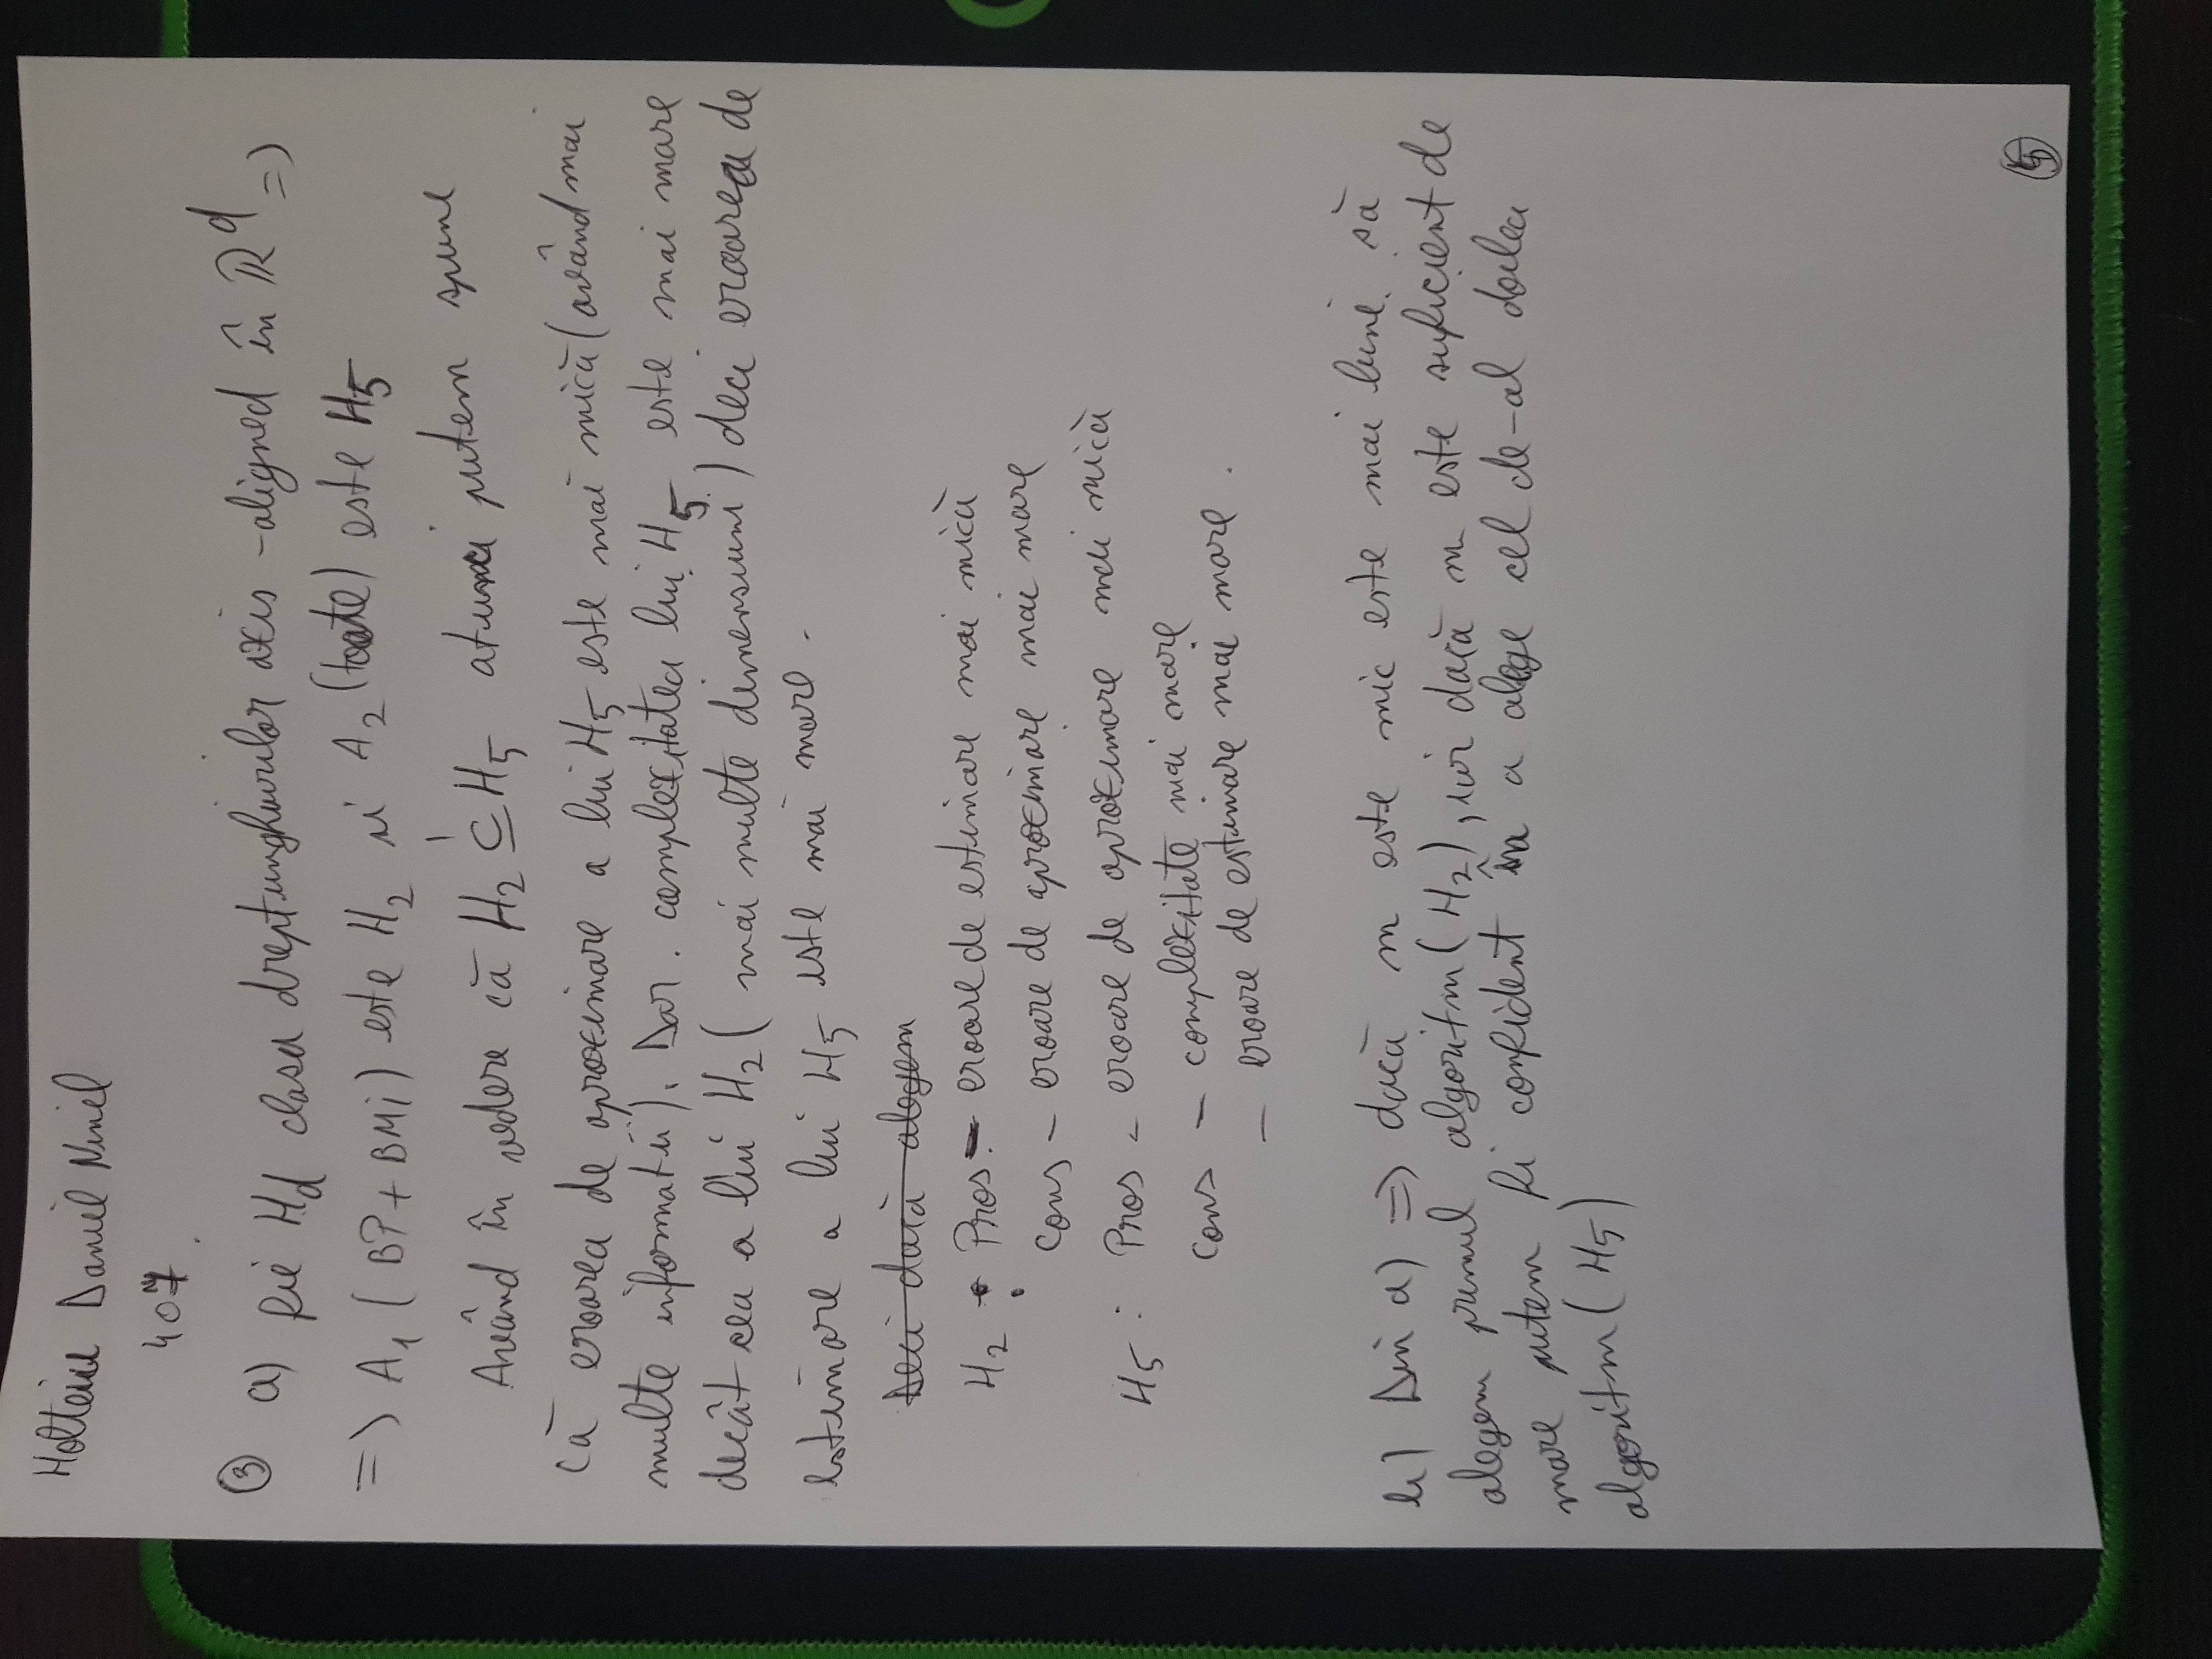 Holteiu Daniel Ninel
407
③ a) Fie Hd clasa dreptunghiurilor axis-aligned în ℝ^d =>
=> A₁ (BP+BMi) este H₂ și A₂ (toate) este H₅
Având în vedere că H₂ ⊆ H₅ atunci putem spune
că eroarea de aproximare a lui H₅ este mai mică (având mai
multe informatii). Dar. complexitatea lui H₅ este mai mare
decât cea a lui H₂ (mai multe dimensiuni) deci eroarea de
estimare a lui H₅ este mai mare.
Deci dacă alegem
H₂ : Pros - eroare de estimare mai mică
Cons - eroare de aproximare mai mare
H₅ : Pros - eroare de aproximare mai mică
Cons - complexitate mai mare
- eroare de estimare mai mare.
b) Din a) => dacă m este mic este mai bine să
alegem primul algoritm (H₂), iar dacă m este suficient de
mare putem fi confident în a alege cel de-al doilea
algoritm (H₅)
5